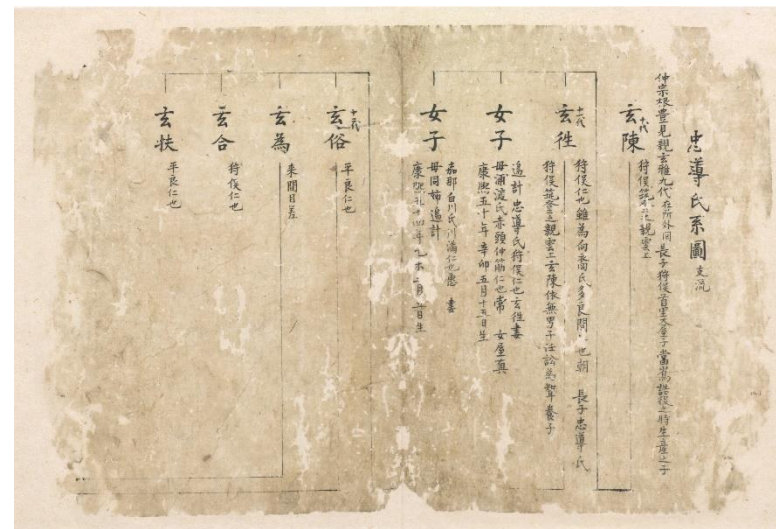 忠導氏系圖 支流
仲宗根豊見親玄雅九代在所外間長子狩俣首里大屋子
十代
玄陳
狩俣筑登之親雲上
十一代
玄徃
狩俣仁也雖為向裔氏多良間仁也朝 長子忠導氏
狩俣筑登之親雲上玄陳依無男子 為聟養子
女子
追計 忠導氏狩俣仁也玄徃妻
母浦渡氏赤頭仲筋仁也常 女屋真
康熙五十年辛卯五月十五日生
女子
嘉那 白川氏川満仁也恵 妻
母同姉追計
康熙五十四年乙未二月 日生
十二代
玄俗
平良仁也
玄為
来間目差
玄合
狩俣仁也
玄扶
平良仁也